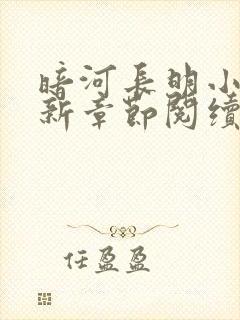 暗河长明小
新章節閱續
任盈盈